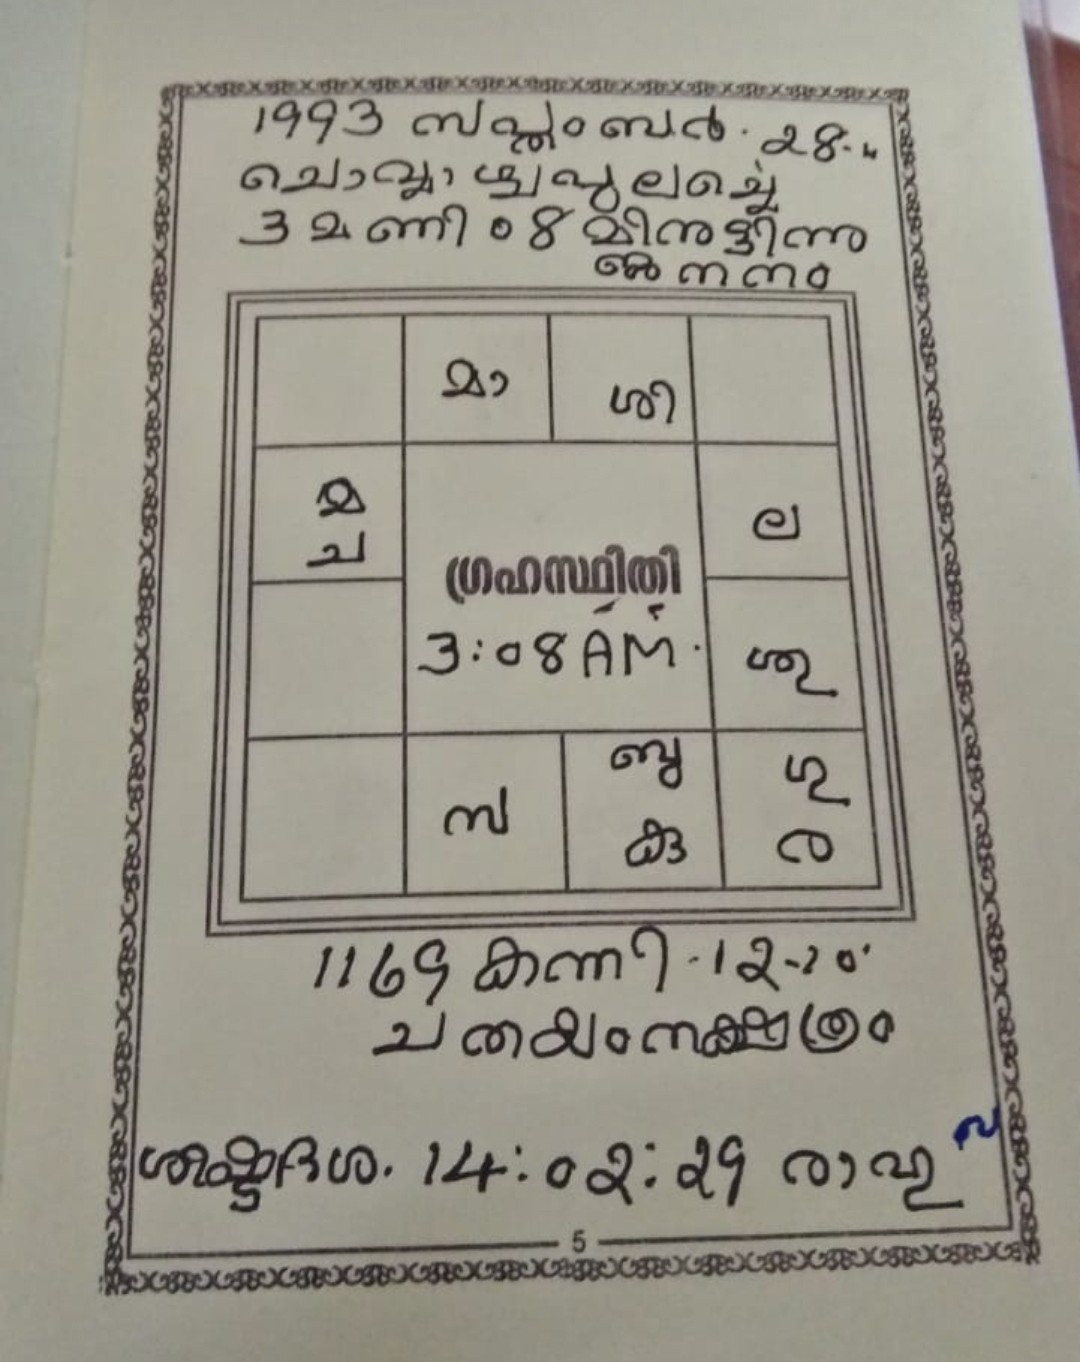 1993 സപ്തംബർ. 28-ന
ചൊവ്വാഴ്ച പുലർച്ചെ
3 മണി 08 മിനുട്ടിന്നു
ജനനം
മാ ശി
മ
ച
ല
ഗ്രഹസ്ഥിതി
3:08 AM.
ശു
സ
ബു
കു
ഗു
ര
1169 കന്നി. 12-ാ൦
ചതയം നക്ഷത്രം
ശിഷ്ടദശ. 14:02:29 രാഹു
5